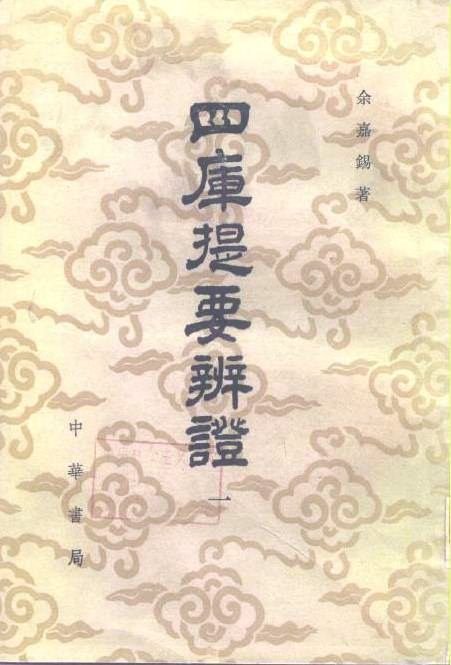 余嘉錫著
四庫提要辨證 一
中華書局